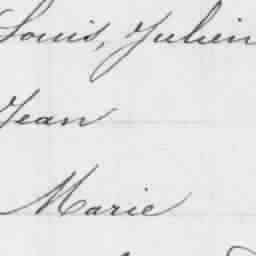 Louis, Julien
Jean
Marie